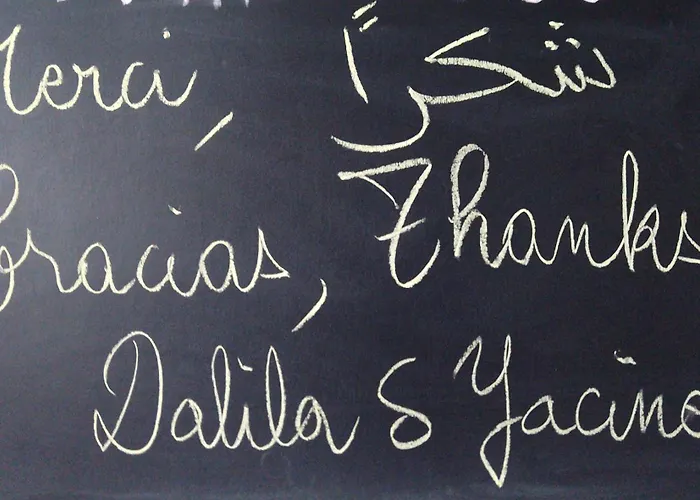 Merci, شكراً
Gracias, Thanks
Dalila & Yacine